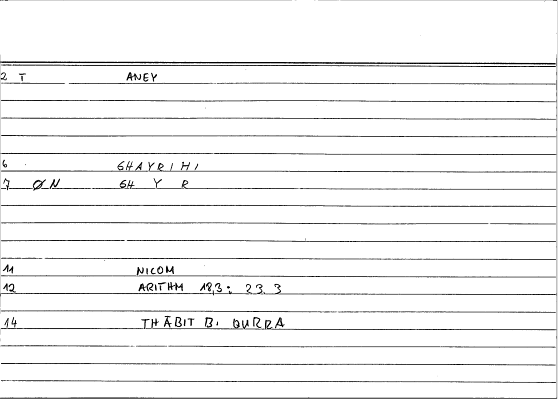 2 T ANEY
6 GHAYRIHI
7 ØN GH Y R
11 NICOM
12 ARITHM 18,3: 23.3
14 THĀBIT B. QURRA